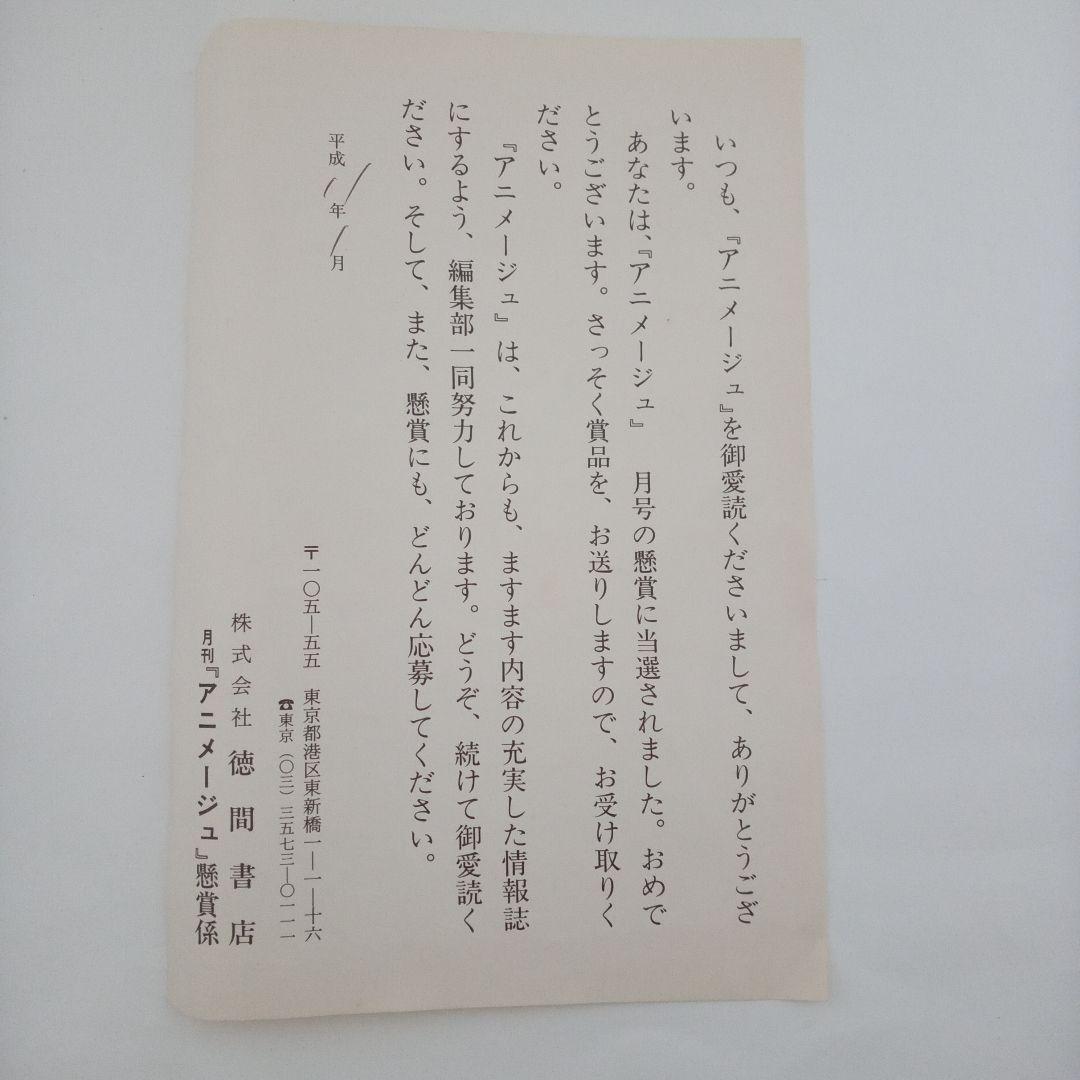 いつも、『アニメージュ』を御愛読くださいまして、ありがとうござ
います。
あなたは、『アニメージュ』　月号の懸賞に当選されました。おめで
とうございます。さっそく賞品を、お送りしますので、お受け取りく
ださい。
『アニメージュ』は、これからも、ますます内容の充実した情報誌
にするよう、編集部一同努力しております。どうぞ、続けて御愛読く
ださい。そして、また、懸賞にも、どんどん応募してください。
平成　年　月
〒一〇五―五五　東京都港区東新橋一―一―十六
☎東京（〇三）三五七三―〇一一一
株式会社 徳間書店
月刊『アニメージュ』懸賞係